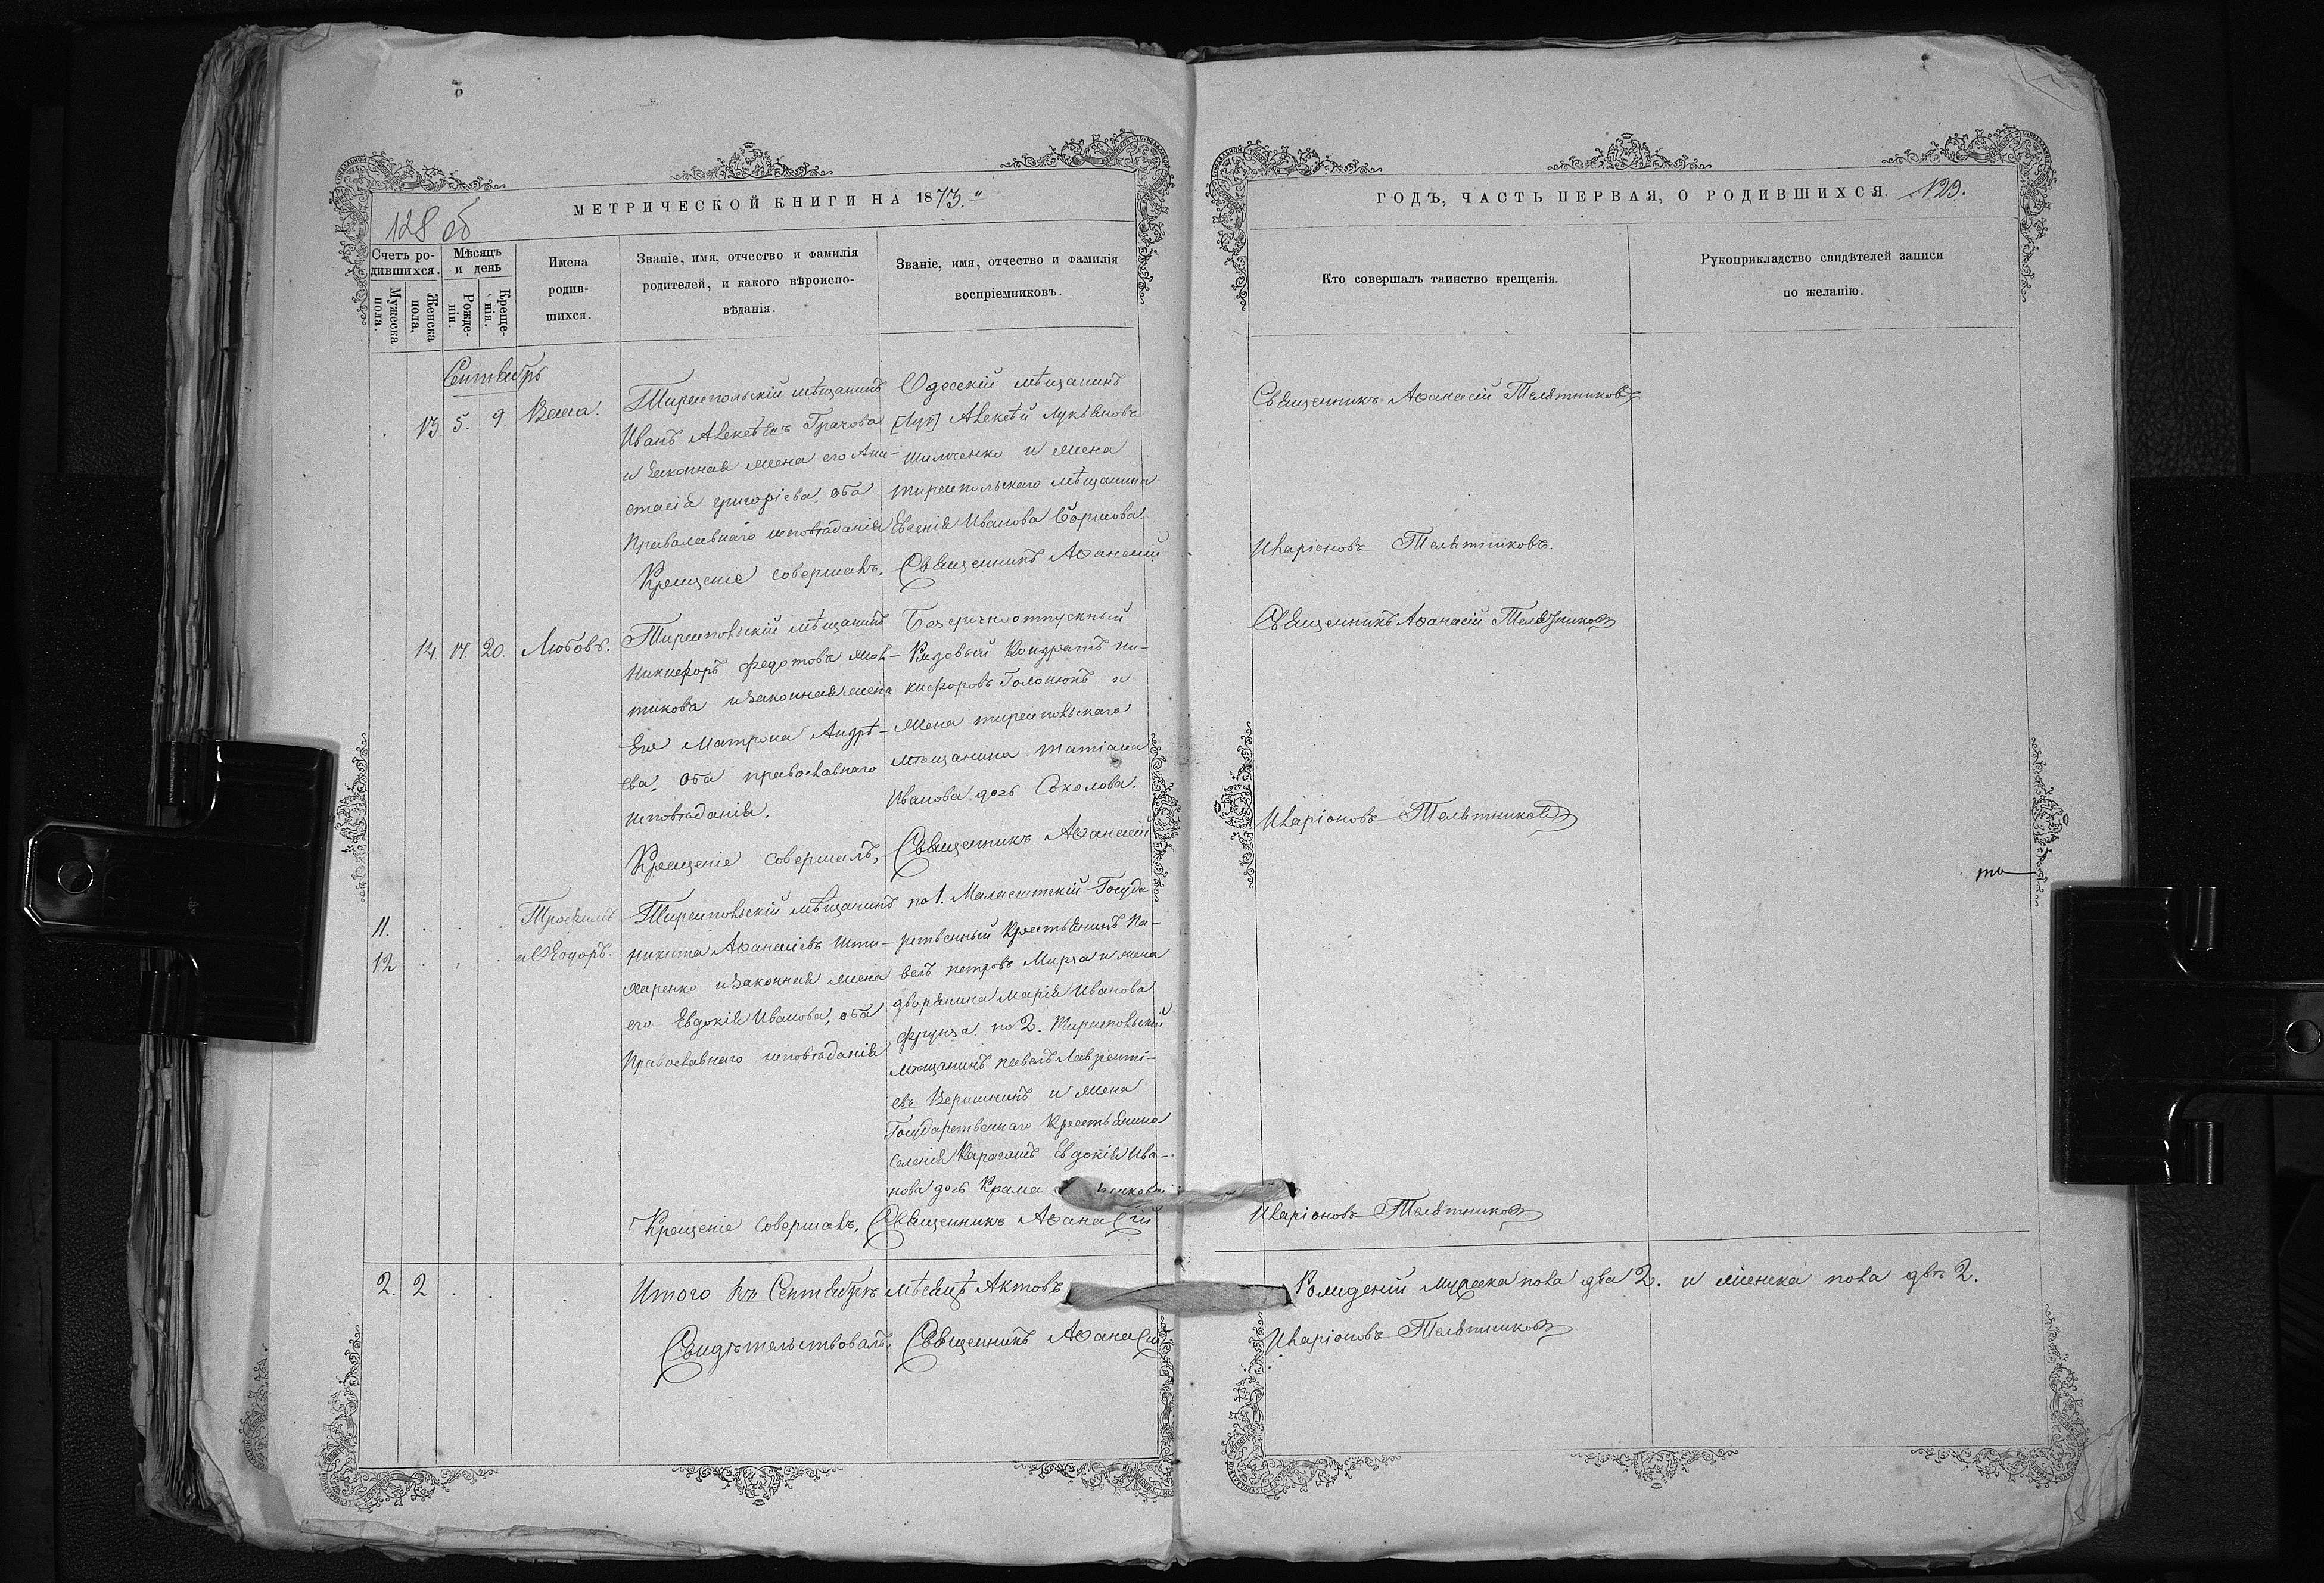 МЕТРИЧЕСКОЙ КНИГИ НА 1873."
128 об
Счетъ ро-
дившихся.
Мужеска
пола.
Женска
пола,
Мѣсяцъ
и день
Рожде-
нія.
Креще-
нія.
Имена
родив-
шихся.
Званіе, имя, отчество и фамилія
родителей, и какого вѣроиспо-
вѣданія.
Званіе, имя, отчество и фамилія
воспріемниковъ.
Сентябрь
13. 5. 9.
Тираспольскій мѣщанинъ
Иванъ Алексѣевъ Грачова
и Законная жена его Ана-
стасія григоріева, оба
Православнаго исповѣданія
Одесскій мѣщанинъ
[Лук] Алексѣй Лукьяновъ
и жена
тираспольскаго мѣщанина
Евгенія Иванова
Крещеніе совершалъ, Священникъ Аѳанасій
14. 17. 20. Любовь.
Тираспольскій мѣщанинъ
Никифоръ Федотовъ
и Законная жена
Его Матрона Андрѣ-
ева, оба православнаго
исповѣданія.
Безсрочноотпускный
Рядовый Кондратъ ни-
кифоровъ Голонюкъ и
Жена тираспольскаго
мѣщанина татіана
Иванова дочь Соколова.
Крещеніе совершалъ, Священникъ Аѳанасій
11.
12
Трофимъ
и Ѳеодоръ.
Тираспольскій мѣщанинъ
никита Аѳанасіевъ Шти-
харенко и Законная жена
его Евдокія Иванова, оба
Православнаго исповѣданія
по 1. Малаештскій Госуда
рственный Крестьянинъ Па-
велъ петровъ Мирза и жена
дворянина Марія Иванова
Фрунза. по 2. Тираспольскій
мѣщанинъ павелъ Лавренті-
евъ Вершининъ и жена
Государственнаго Крестьянина
Селенія Карагашъ Евдокія Ива-
нова дочь
Крещеніе Совершалъ, Священникъ Аѳанасій
2. 2
Итого въ Сентябрѣ мѣсяцѣ Актовъ
Свидѣтельствовалъ, Священникъ Аѳанасій
ГОДЪ, ЧАСТЬ ПЕРВАЯ, О РОДИВШИХСЯ. 129.
Кто совершалъ таинство крещенія.
Рукоприкладство свидѣтелей записи
по желанію.
Священникъ Аѳанасій Телятниковъ
Иларіоновъ Телятниковъ.
Священникъ Аѳанасій Телятниковъ
Иларіоновъ Телятниковъ
Иларіоновъ Телятниковъ
Рожденій мужеска пола два 2. и женска пола двѣ 2.
Иларіоновъ Телятниковъ